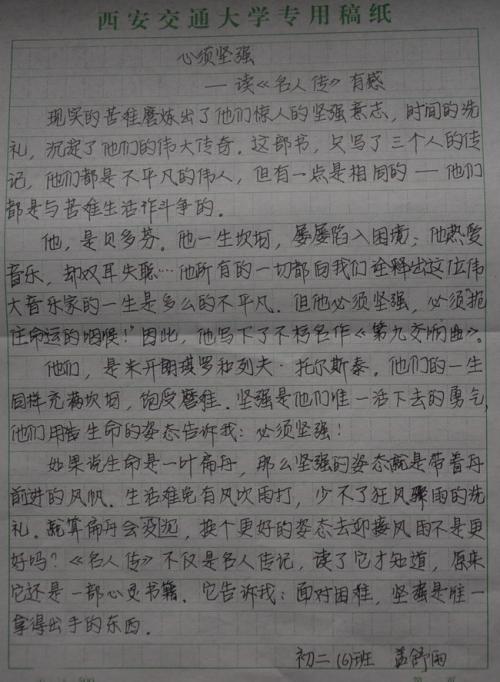 西安交通大学专用稿纸
必须坚强
——读《名人传》有感
现实的苦难磨炼出了他们惊人的坚强意志，时间的洗
礼，沉淀了他们的伟大传奇。这部书，只写了三个人的传
记，他们都是不平凡的伟人，但有一点是相同的——他们
都是与苦难生活作斗争的。
他，是贝多芬。他一生坎坷，屡屡陷入困境；他热爱
音乐，却双耳失聪…他所有的一切都向我们诠释出这位伟
大音乐家的一生是多么的不平凡。但他必须坚强，必须“扼
住命运的咽喉！”因此，他写下了不朽名作《第九交响曲》。
他们，是米开朗琪罗和列夫·托尔斯泰。他们的一生
同样充满坎坷，饱受磨难。坚强是他们唯一活下去的勇气，
他们用着生命的姿态告诉我：必须坚强！
如果说生命是一叶扁舟，那么坚强的姿态就是带着舟
前进的风帆。生活难免有风吹雨打，少不了狂风骤雨的洗
礼。就算扁舟会沉没，换个更好的姿态去迎接风雨不是更
好吗？《名人传》不仅是名人传记，读了它才知道，原来
它还是一部心灵书籍。它告诉我：面对困难，坚强是唯一
拿得出手的东西。
初二（6）班 孟舒雨